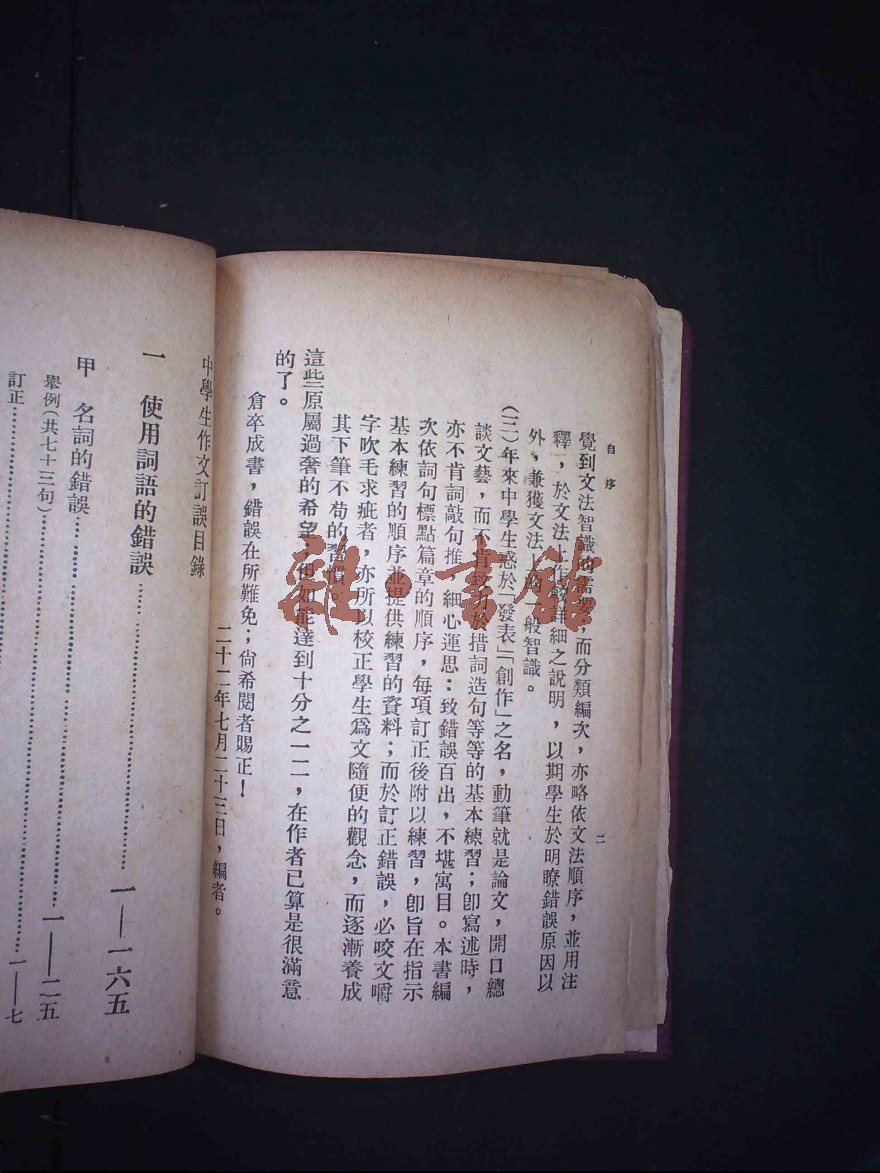 自序
二
覺到文法智識的需要,而分類編次,亦略依文法順序,並用注
釋,於文法上作較詳細之說明,以期學生於明瞭錯誤原因以
外,兼獲文法上的一般智識。
(三)年來中學生惑於「發表」「創作」之名,動筆就是論文,開口總
談文藝,而不肯致力於措詞造句等等的基本練習;卽寫述時,
亦不肯詞敲句推,細心運思:致錯誤百出,不堪寓目。本書編
次依詞句標點篇章的順序,每項訂正後附以練習,卽旨在指示
基本練習的順序並提供練習的資料;而於訂正錯誤,必咬文嚼
字吹毛求疵者,亦所以校正學生爲文隨便的觀念,而逐漸養成
其下筆不苟的習慣。
這些原屬過奢的希望,但如能達到十分之一二,在作者已算是很滿意
的了。
倉卒成書,錯誤在所難免;尙希閱者賜正!
二十二年七月二十三日,編者。
中學生作文訂誤目錄
一 使用詞語的錯誤……一—一六五
甲 名詞的錯誤……一—二五
舉例(共七十三句)……一—七
訂正……
雜·書館